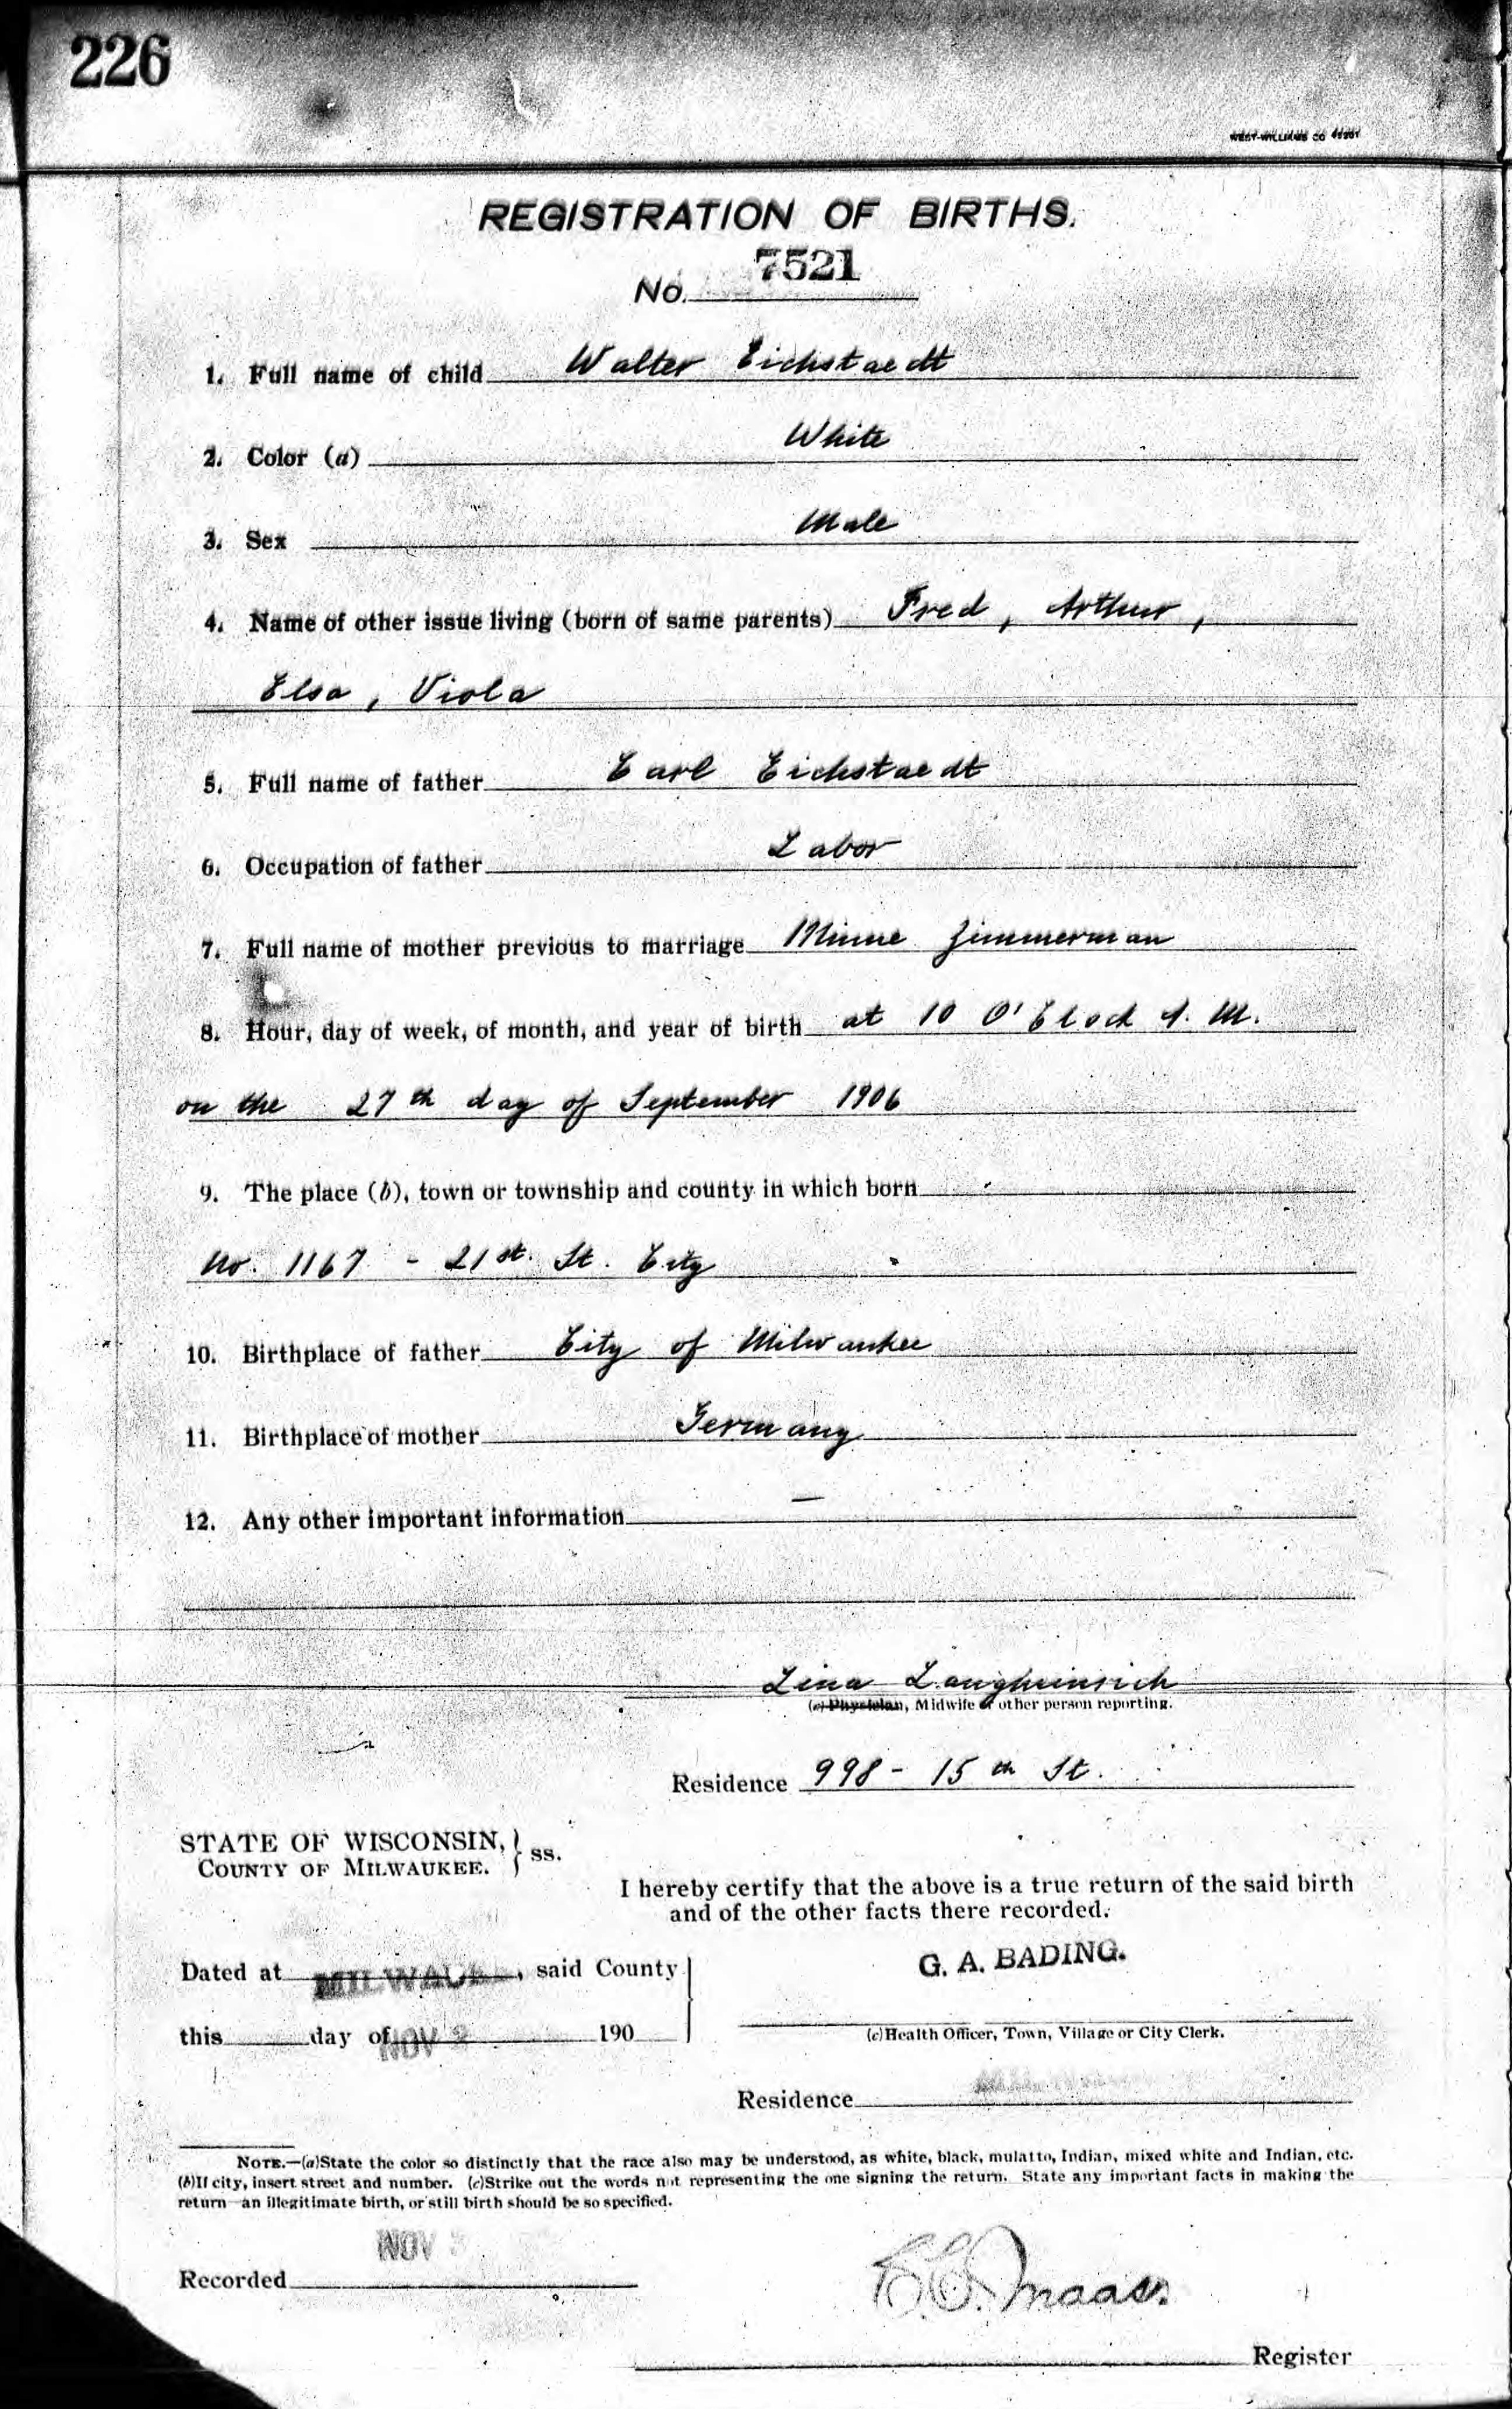 226
WEST-WILLIAMS CO
REGISTRATION OF BIRTHS.
No. 7521
1. Full name of child Walter Eichstaedt
2. Color (a) White
3. Sex Male
4. Name of other issue living (born of same parents) Fred, Arthur,
Elsa, Viola
5. Full name of father Carl Eichstaedt
6. Occupation of father Labor
7. Full name of mother previous to marriage Minne Zimmerman
8. Hour, day of week, of month, and year of birth at 10 O'Clock A. M.
on the 27th day of September 1906
9. The place (b), town or township and county in which born
No. 1167 - 21st. St. City
10. Birthplace of father City of Milwaukee
11. Birthplace of mother Germany
12. Any other important information —
Lina Langheinrich
(c) Physician, Midwife or other person reporting.
Residence 998 - 15th St.
STATE OF WISCONSIN, } ss.
COUNTY OF MILWAUKEE. }
I hereby certify that the above is a true return of the said birth
and of the other facts there recorded.
Dated at MILWAUKEE, said County
G. A. BADING.
this day of NOV 190
(c) Health Officer, Town, Village or City Clerk.
Residence
NOTE.—(a) State the color so distinctly that the race also may be understood, as white, black, mulatto, Indian, mixed white and Indian, etc.
(b) If city, insert street and number. (c) Strike out the words not representing the one signing the return. State any important facts in making the
return—an illegitimate birth, or still birth should be so specified.
Recorded NOV
Maas.
Register